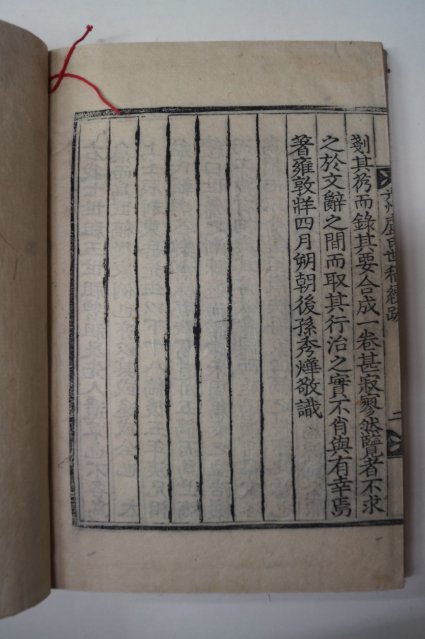 剗其荐而錄其要合成一卷甚寂寥然覽者不求
之於文辭之間而取其行治之實不肖與有幸焉
著雍敦牂四月朔朝後孫秀燁敬識